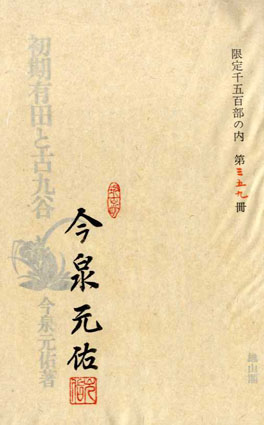 限定千五百部の内 第三五九冊
雄山閣
今泉元佑
初期有田と古九谷
今泉元佑著